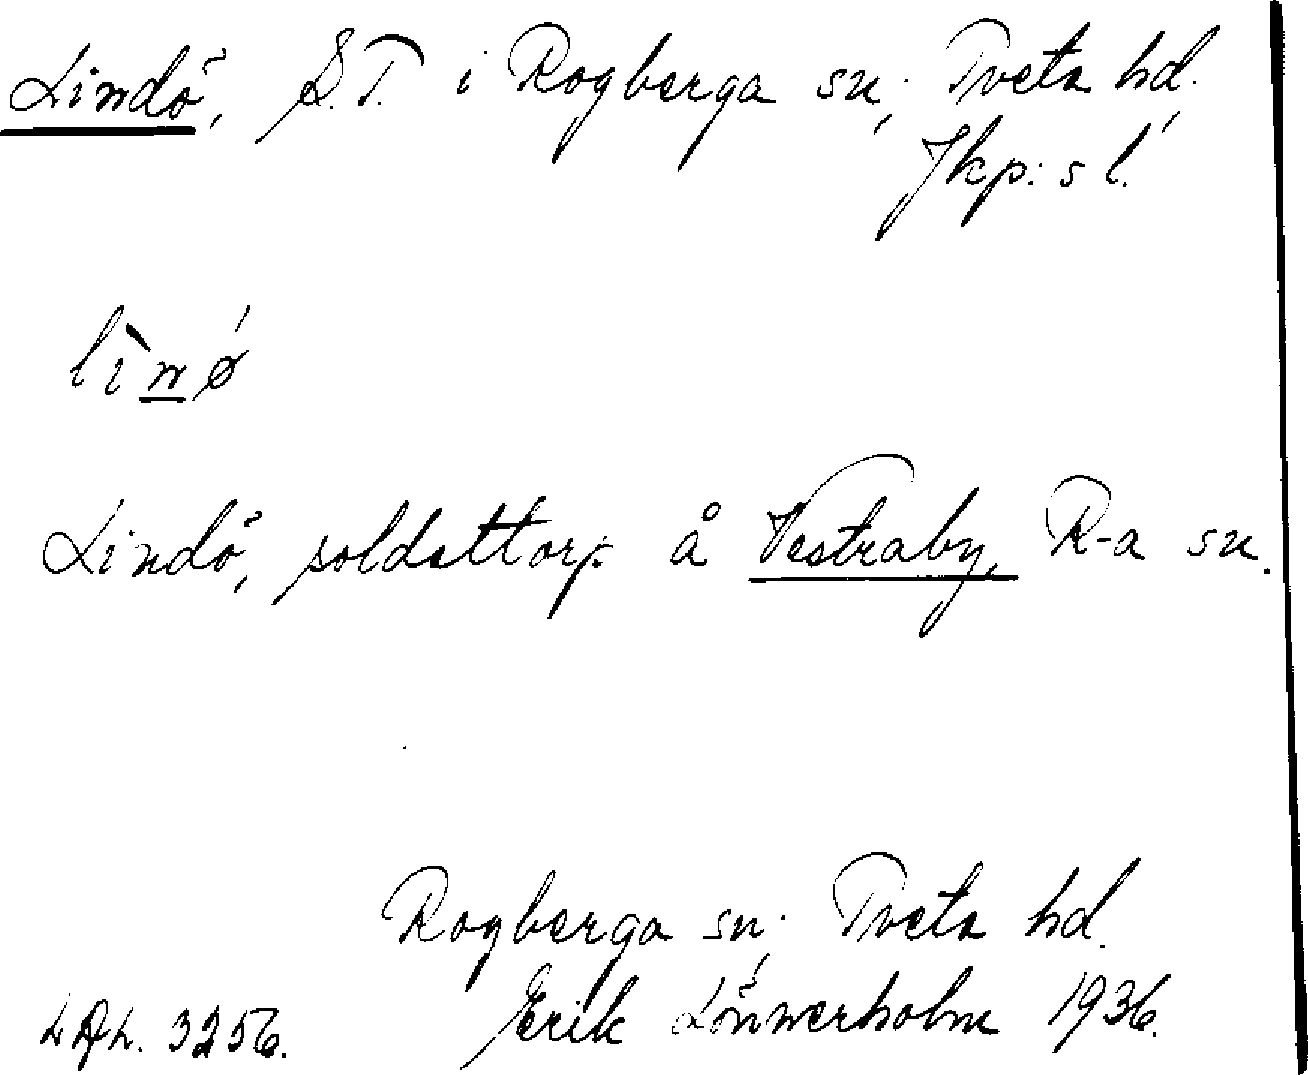 Lindö, S.T. i Rogberga sn., Tveta hd.,
Jkp:s l.
lìnǿ
Lindö, soldattorp å Vestraby, R-a sn.
Rogberga sn., Tveta hd.
Erik Lönnerholm 1936.
3256.